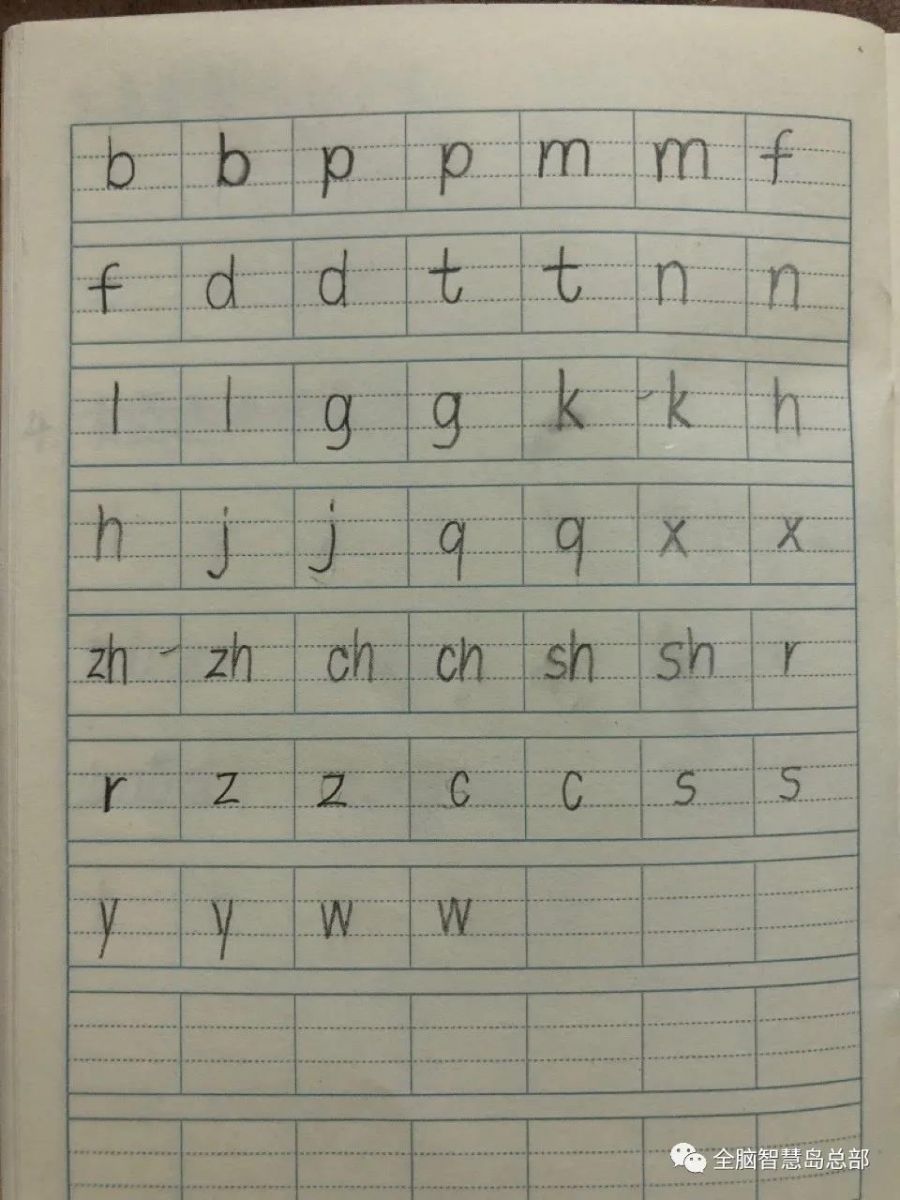 b b p p m m f
f d d t t n n
l l g g k k h
h j j q q x x
zh zh ch ch sh sh r
r z z c c s s
y y w w
全脑智慧岛总部